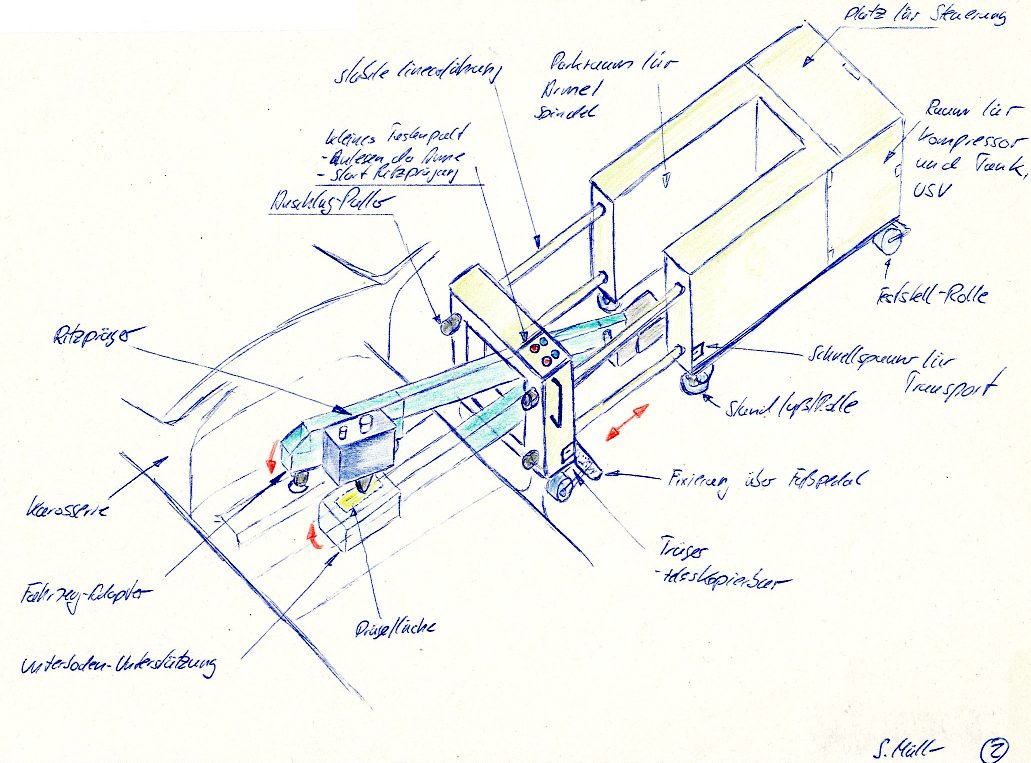 Platz für Steuerung
stabile Linearführung
Parkraum für
Ärmel
Spindel
Raum für
Kompressor
und Tank,
USV
kleines Tastenpult
- Anlegen der Arme
- Start Ritzprägung
Anschlag-Puffer
Feststell-Rolle
Ritzpräger
Schnellspanner für
Transport
Standfuß/Rolle
Fixierung über Fußpedal
Karosserie
Träger
- teleskopierbar
Fahrzeug-Adapter
Prägefläche
Unterboden-Unterstützung
S. Müll
2